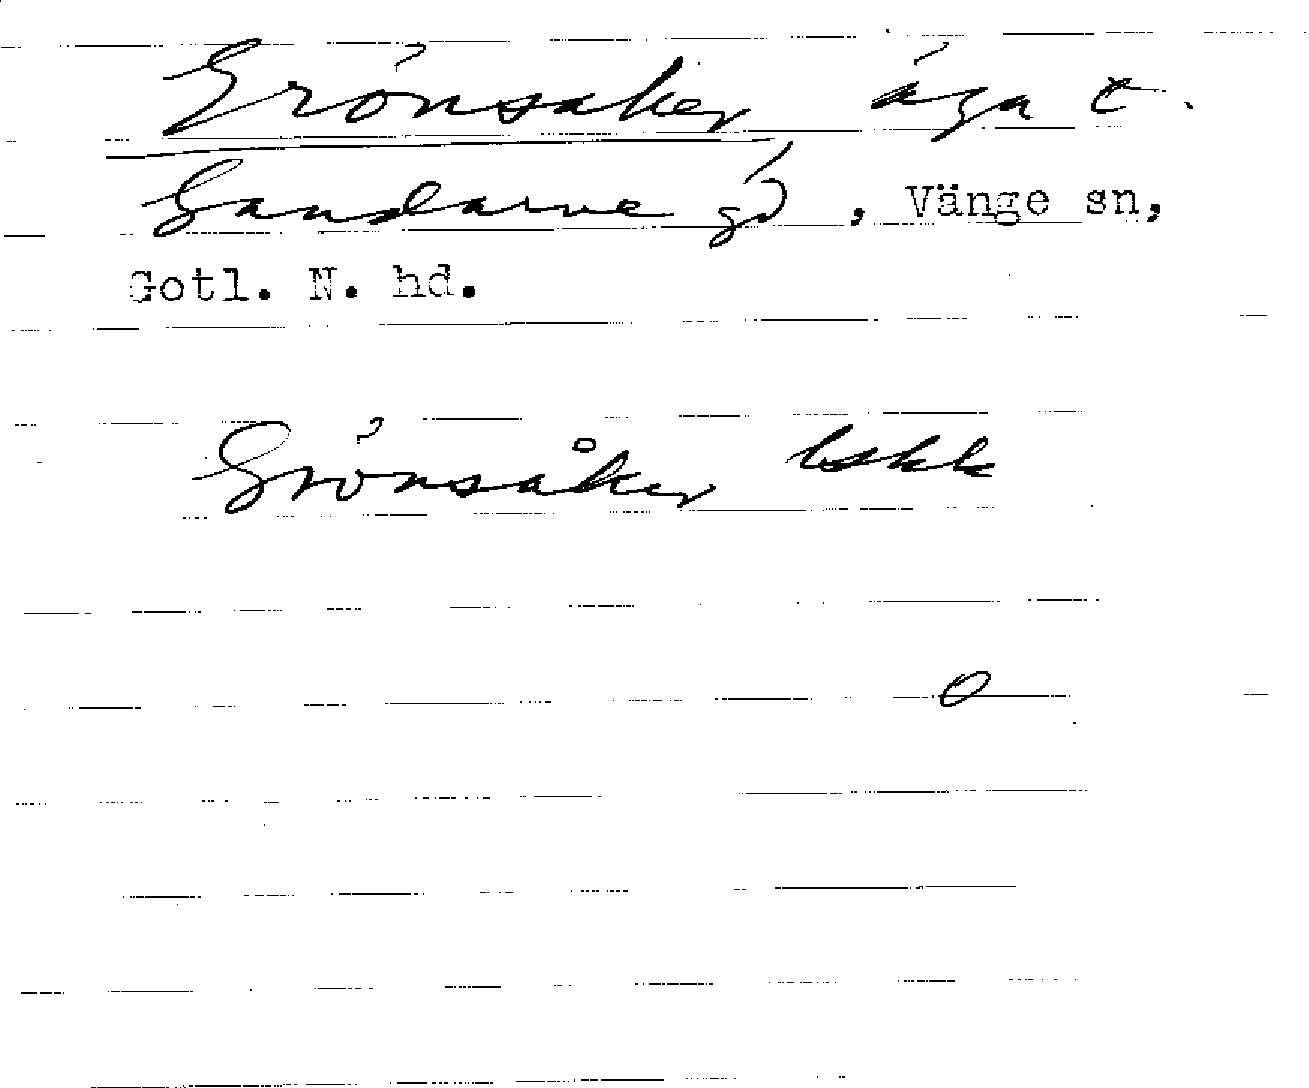 Grönsåker äga t.
Gandarve gd, Vänge sn,
Gotl. N. hd.
Grönsåker